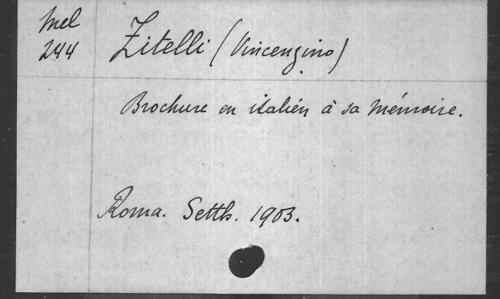 Mel
244
Zitelli (Vincenzino)
Brochure en italien à sa mémoire.
Roma. Settb. 1903.